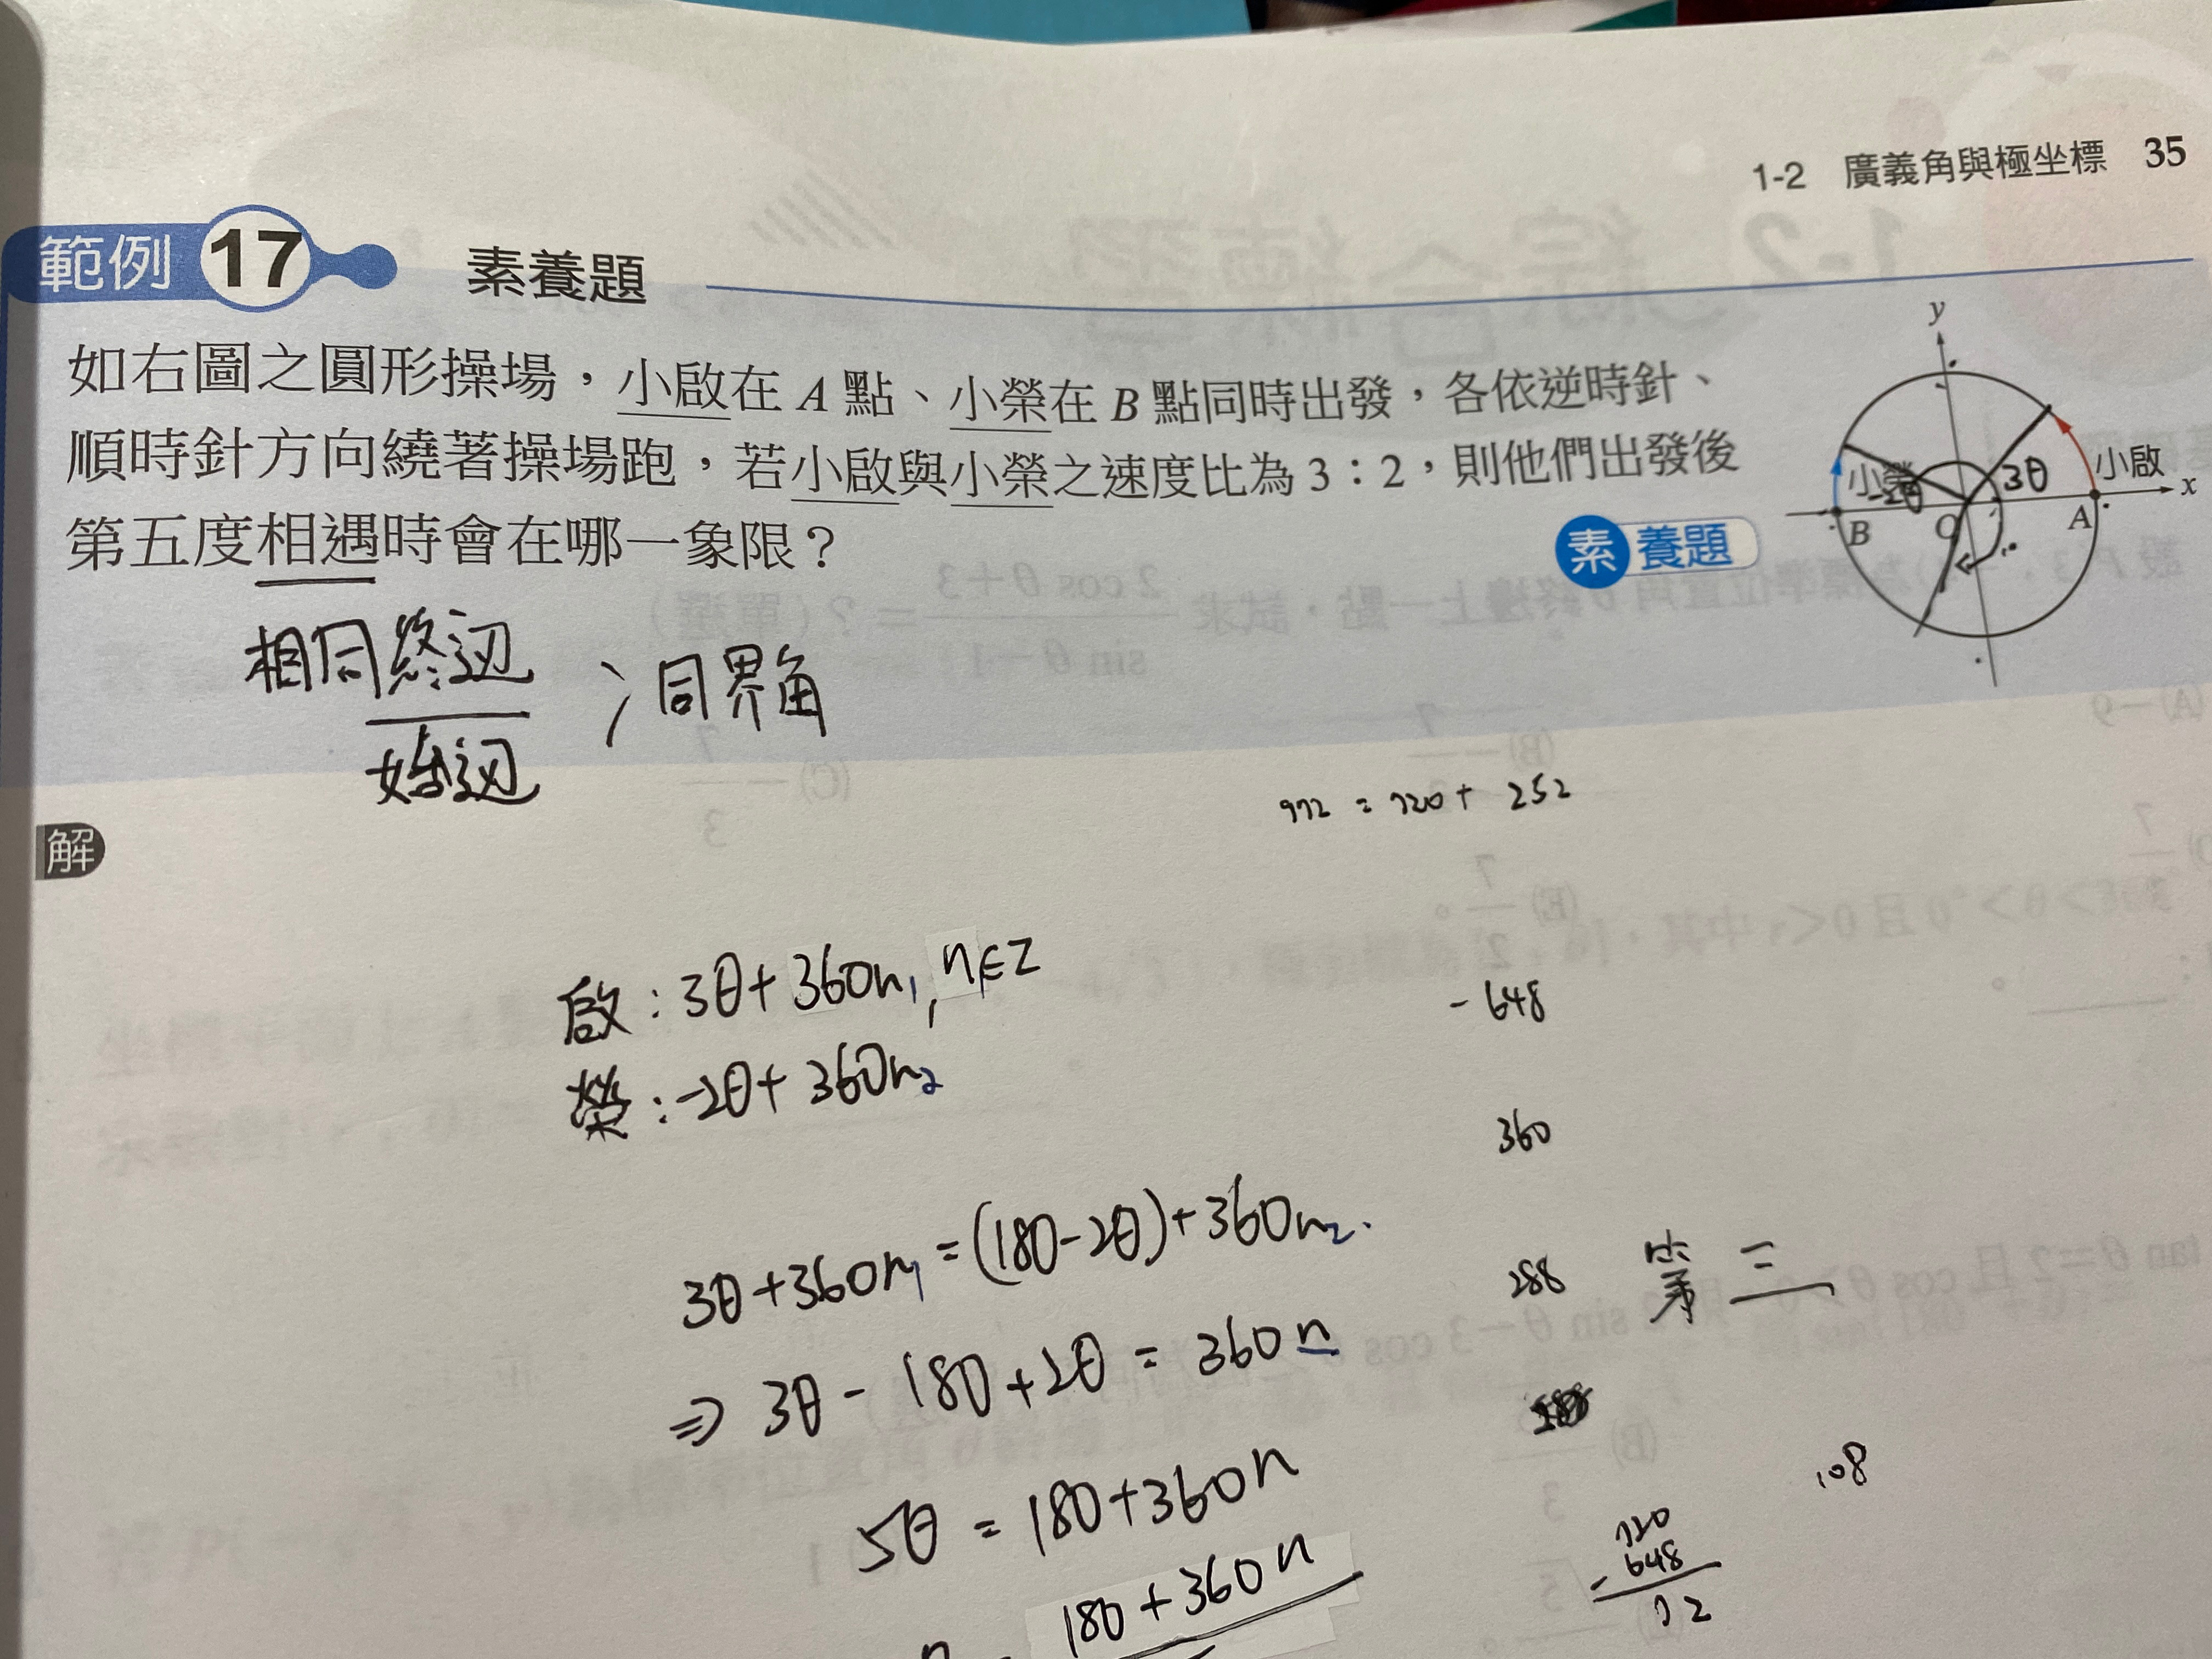 1-2 廣義角與極坐標 35
範例 17 素養題
如右圖之圓形操場，小啟在 A 點、小榮在 B 點同時出發，各依逆時針、
順時針方向繞著操場跑，若小啟與小榮之速度比為 3：2，則他們出發後
第五度相遇時會在哪一象限？
素養題
y
小啟
x
小榮
3θ
-2θ
B
O
A
相同終边
始边
；同界角
972 = 720 + 252
解
啟：3θ+360n1, n∈Z
榮：-2θ+360n2
-648
360
3θ+360n1=(180-2θ)+360n2.
288 第三
⇒ 3θ-180+2θ=360n
5θ=180+360n
108
720
-648
72
180+360n